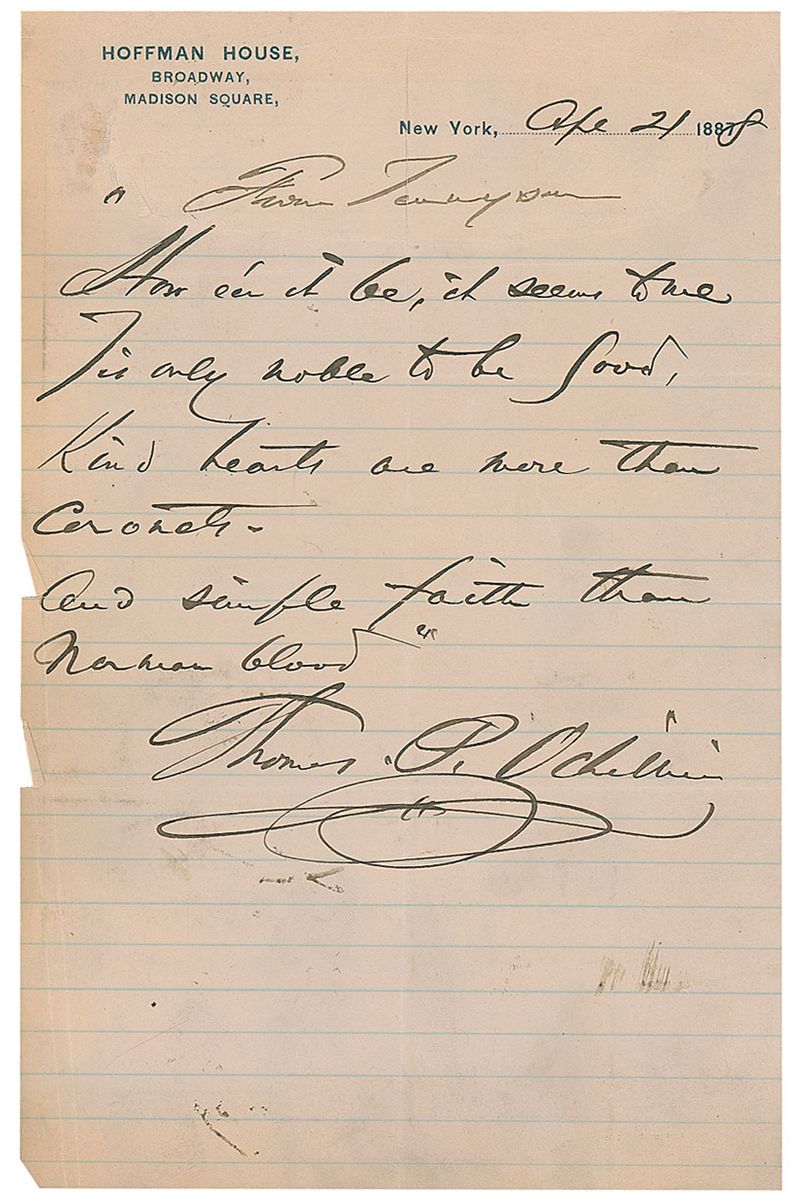 HOFFMAN HOUSE,
BROADWAY,
MADISON SQUARE,
New York, Apl 21 1888
" From Tennyson
How e'er it be, it seems to me
Tis only noble to be Good,
Kind hearts are more than
Coronets -
And simple faith than
Norman blood "
Thomas P. Ochiltree